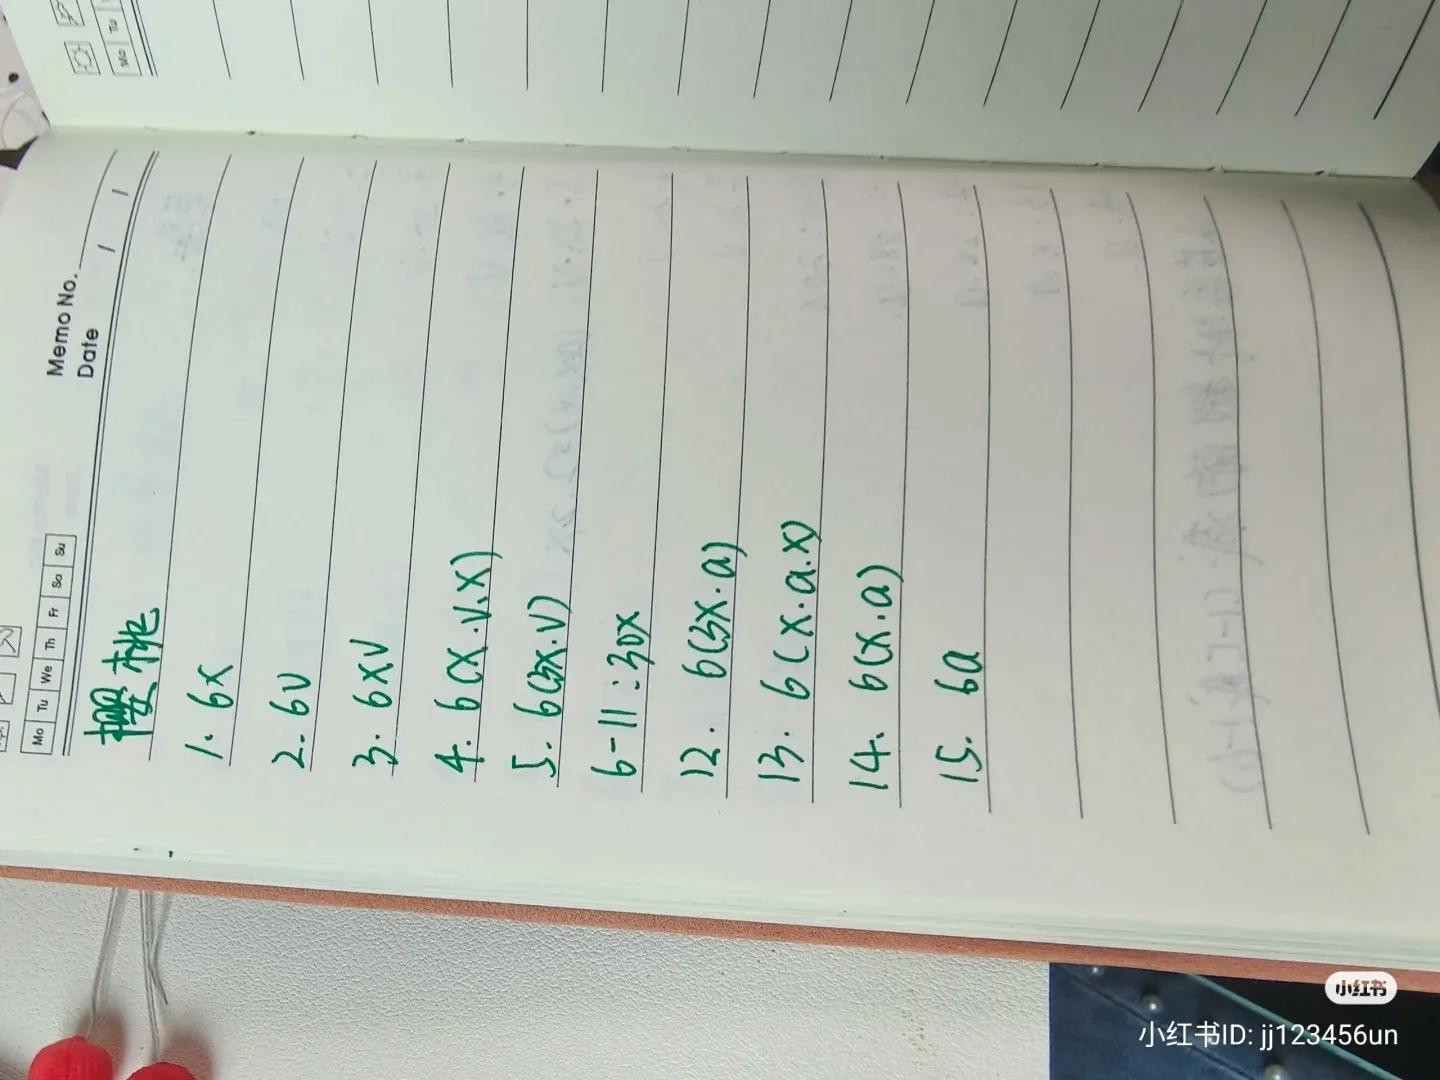 Memo No.
Date / /
Mo Tu We Th Fr Sa Su
樱桃
1. 6x
2. 6v
3. 6xv
4. 6(x.v.x)
5. 6(3x.v)
6-11:30x
12. 6(3x.a)
13. 6(x.a.x)
14. 6(x.a)
15. 6a
Mo Tu
小红书
小红书ID: jj123456un